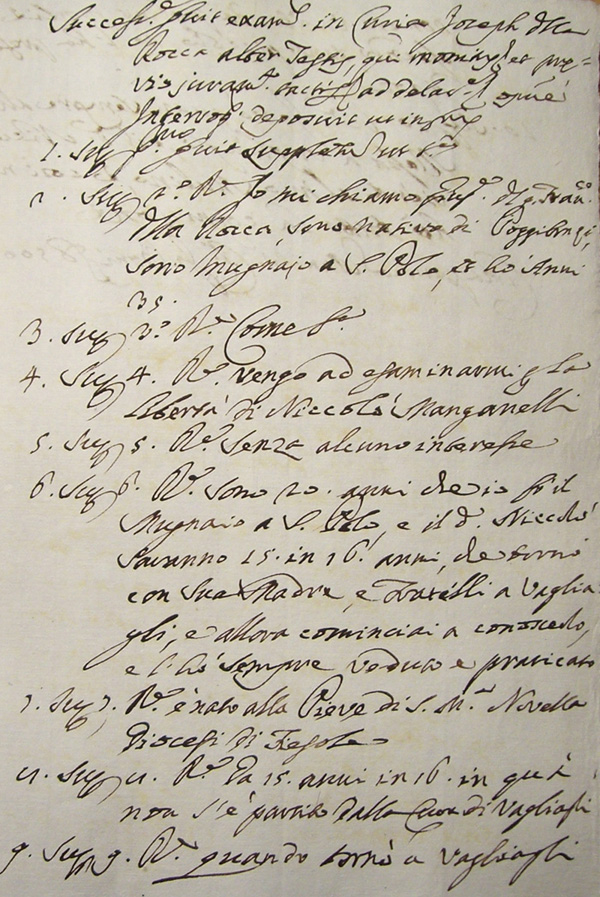 Success. fuit exam. in Curia Joseph della
Rocca alter Testis, qui monitus et
juram. tactis ad delat.
Interrog. deposuit ut infra
1. Sup. p. fuit suppletum ut s.
2. Sup. 2.º R. Io mi chiamo del q.
della Rocca, sono nativo di Poggibonzi,
sono Mugnaio a S. Polo, et hò Anni
35.
3. Sup. 3.º R. Come s.
4. Sup. 4. R. vengo ad esaminarmi p. la
libertà di Niccolò Manganelli
5. Sup. 5. R. Senza alcuno interesse
6. Sup. 6. R. Sono 20. anni che io fò il
Mugnaio a S. Polo, e il d. Niccolò
Saranno 15. in 16. anni, che tornò
con Sua Madre, e Fratelli a Vaglia
gli, e allora cominciai a conoscerlo,
e l'hò sempre veduto e praticato
7. Sup. 7. R. è nato alla Pieve di S. M.ª Novella
Diocesi di Fiesole
8. Sup. 8. R. Da 15. anni in 16. in quà
non s'è partito dalla Cura di Vagliagli
9. Sup. 9. R. quando tornò a Vagliagli